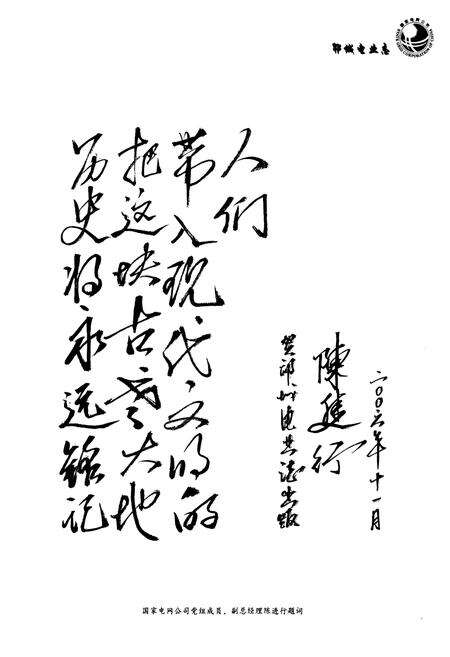 城电业志
历史将永远铭记
把这块古老大地
带入现代文明的
人们
电业志出版
陳進行
二〇〇六年十一月
国家电网公司党组成员、副总经理陈进行题词